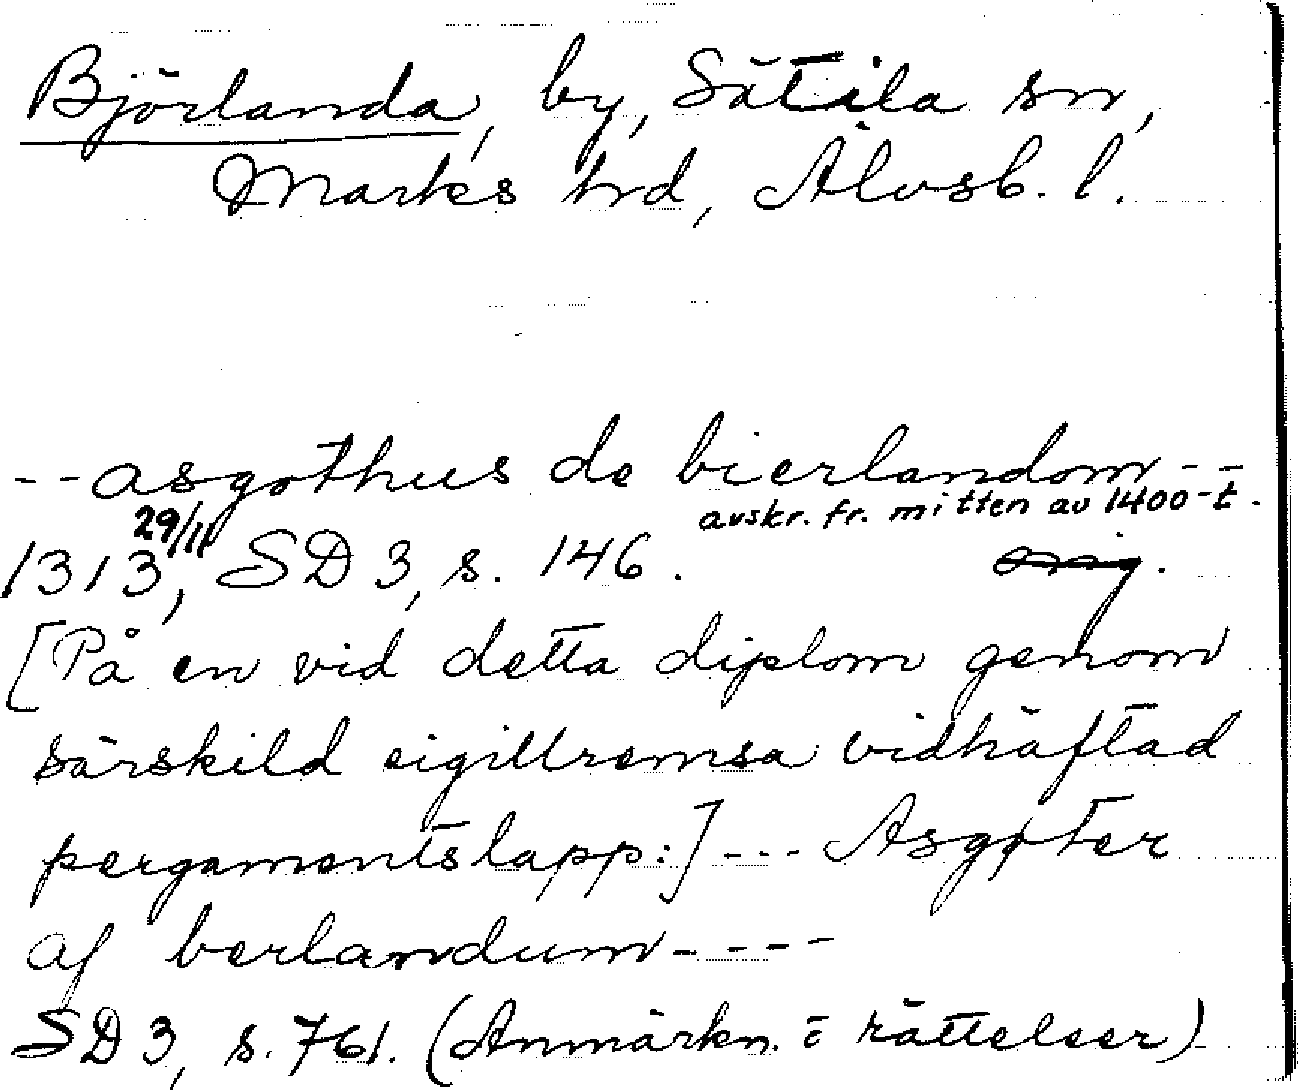 Björlanda, by, Sätila sn,
Marks hd, Älvsb. l.
--asgothus de bierlandom--
avskr. fr. mitten av 1400-t.
1313 29/11, SD 3, s. 146. orig.
[På en vid detta diplom genom
särskild sigillremsa vidhäftad
pergamentslapp:] --- Asgøter
af berlandum----
SD 3, s. 761. (Anmärkn. o rättelser)